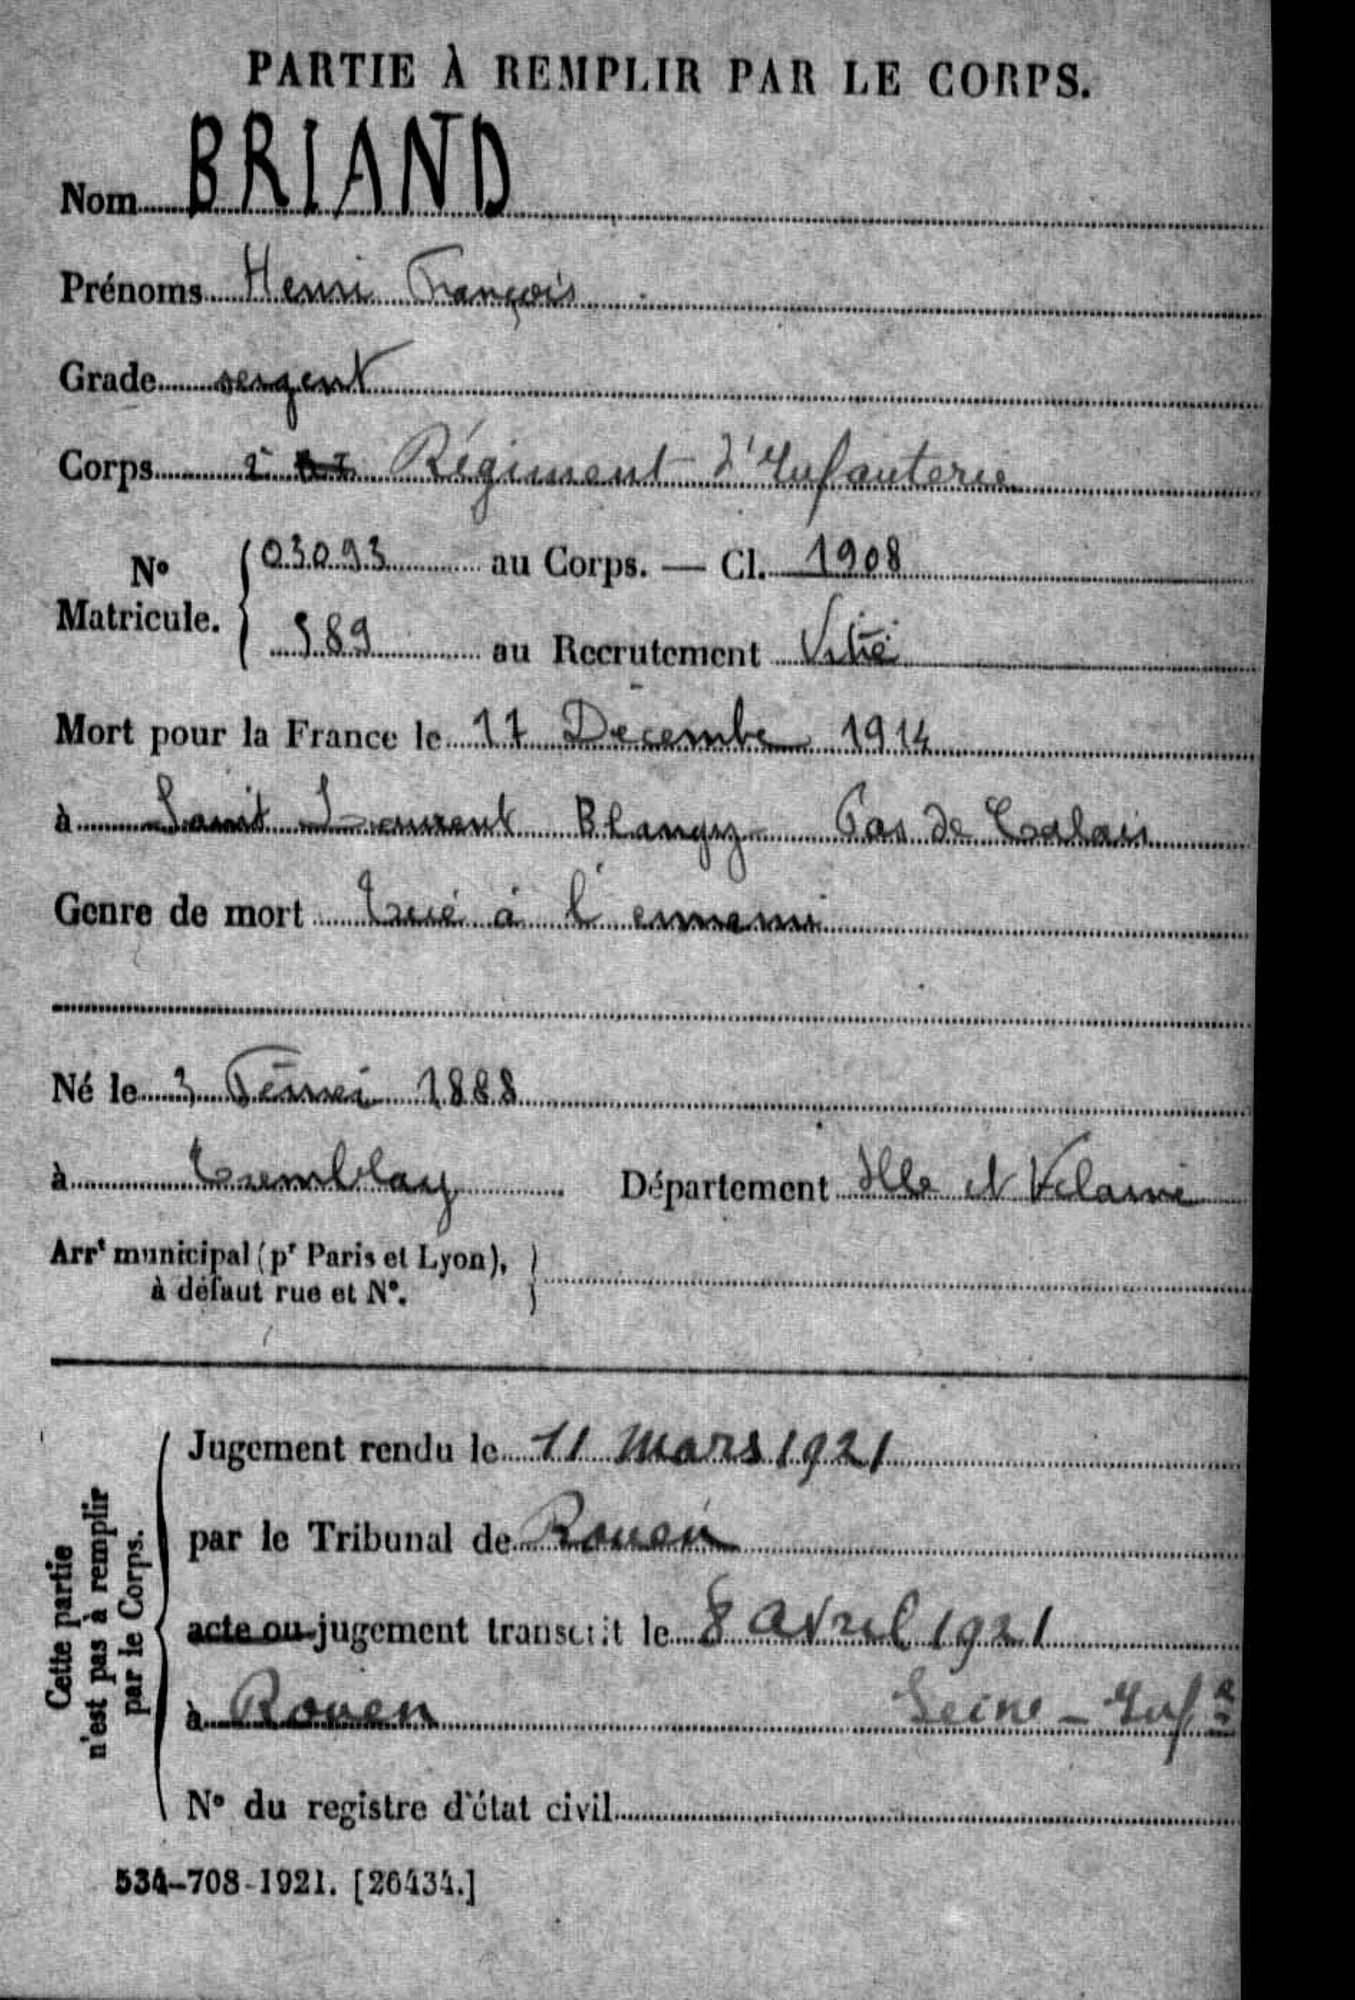 PARTIE À REMPLIR PAR LE CORPS.
Nom BRIAND
Prénoms Henri François
Grade sergent
Corps 2e Régiment d'Infanterie
N° Matricule. 03093 au Corps. — Cl. 1908
589 au Recrutement Vitré
Mort pour la France le 17 Décembre 1914
à Saint Laurent Blangy Pas de Calais
Genre de mort Tué à l'ennemi
Né le 3 Février 1888
à Tremblay Département Ille et Vilaine
Arrt municipal (pr Paris et Lyon),
à défaut rue et N°.
Cette partie
n'est pas à remplir
par le Corps.
Jugement rendu le 11 Mars 1921
par le Tribunal de Rouen
acte ou jugement transcrit le 8 avril 1921
à Rouen Seine-Infre
N° du registre d'état civil
534-708-1921. [26434.]